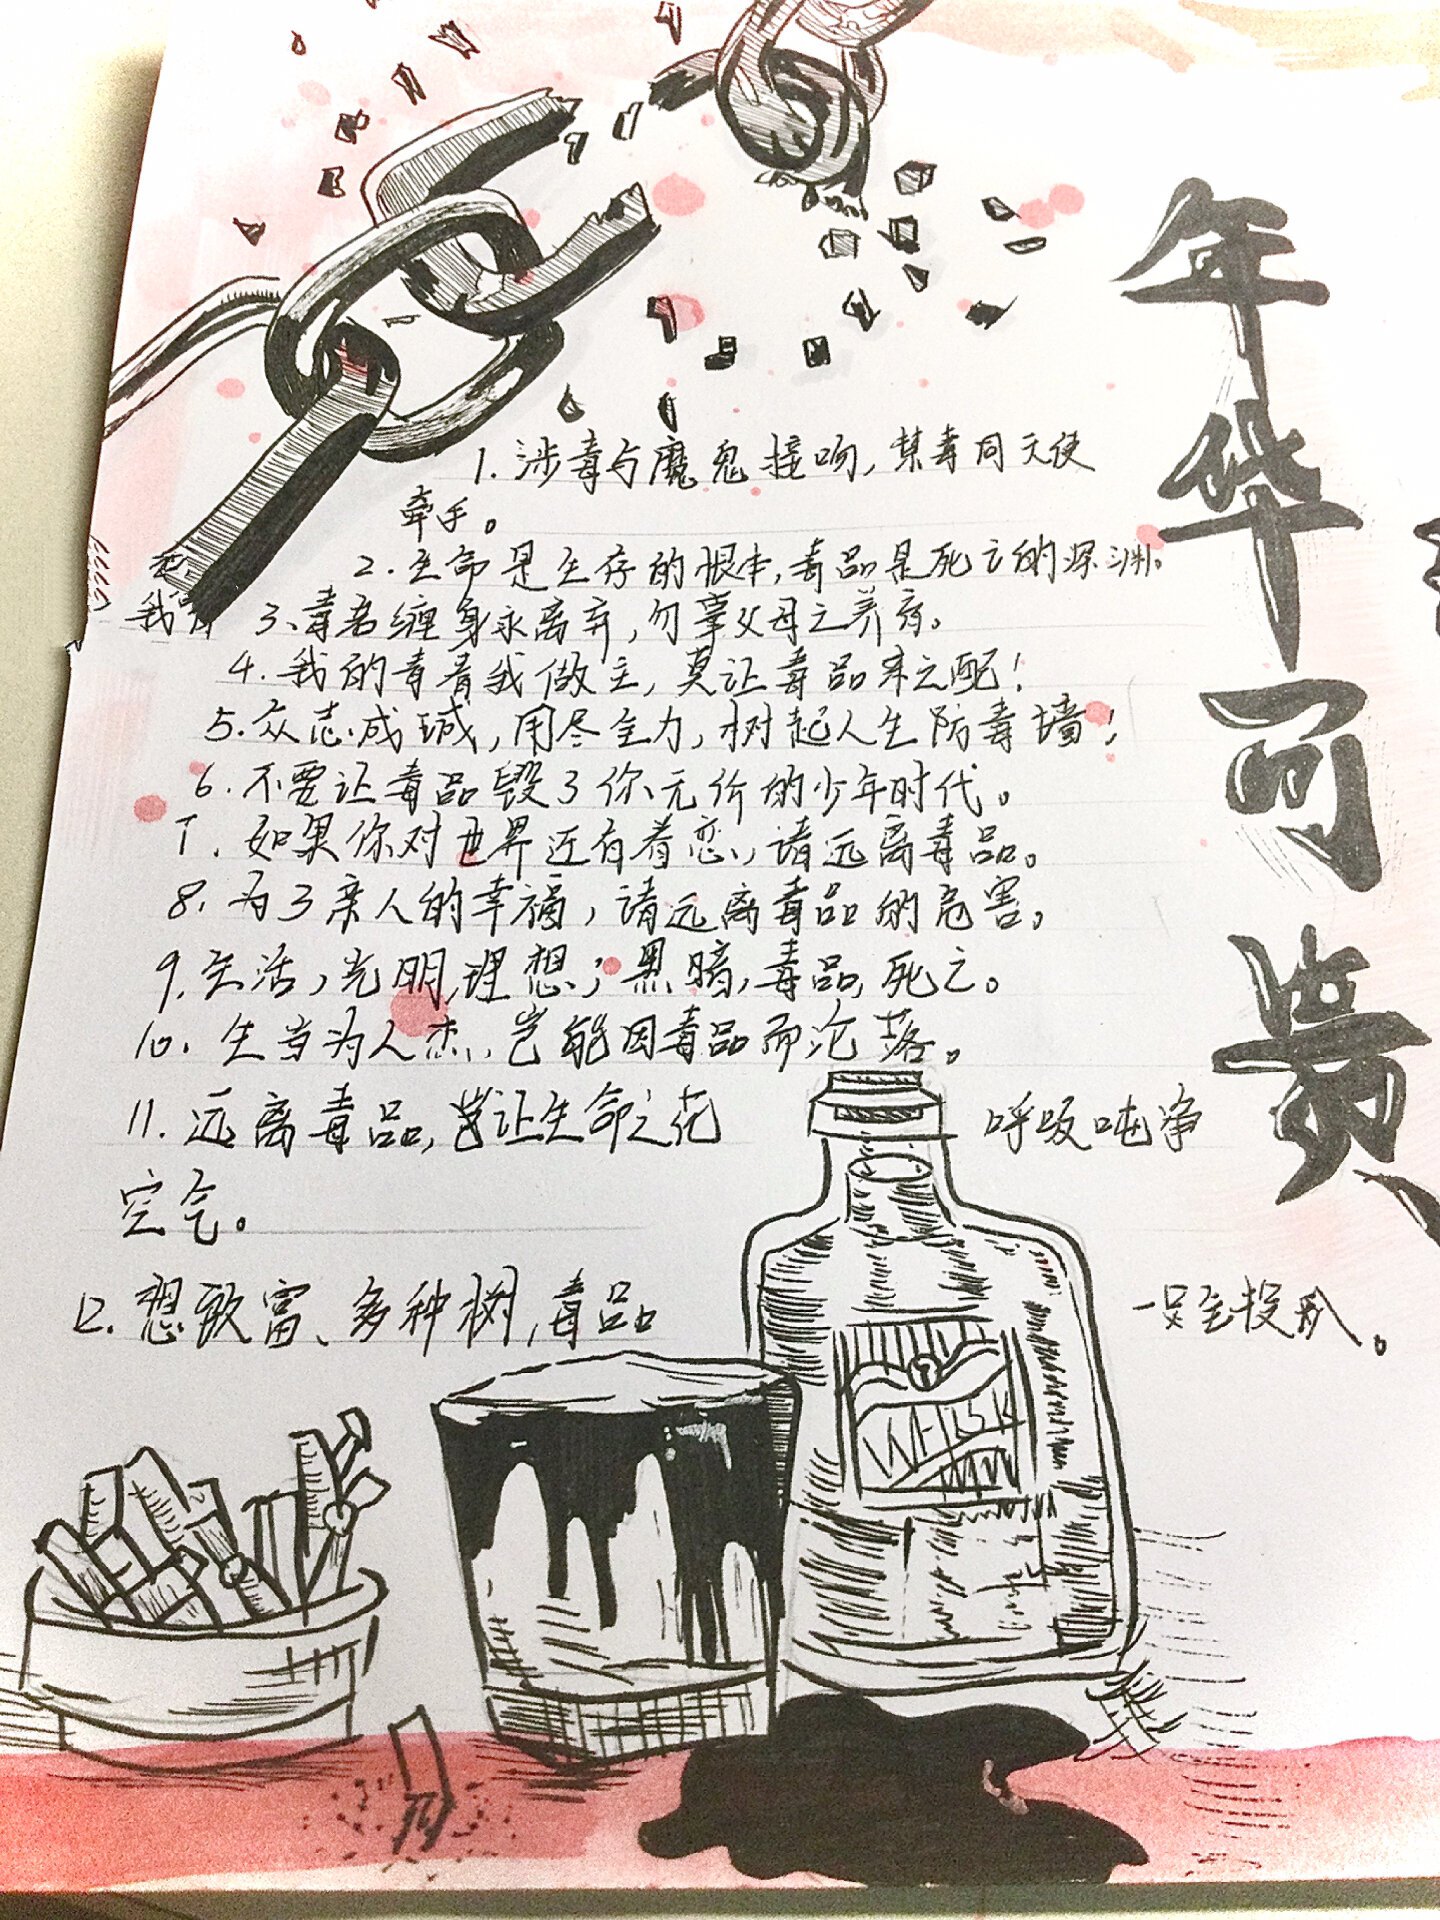 年华可贵
1.涉毒与魔鬼接吻,禁毒同天使
牵手。
2.生命是生存的根本,毒品是死亡的深渊。
3.毒若缠身永离弃,勿辜父母之养育。
4.我的青春我做主,莫让毒品来支配!
5.众志成城,用尽全力,树起人生防毒墙!
6.不要让毒品毁了你无价的少年时代。
7.如果你对世界还有着恋,请远离毒品。
8.为了亲人的幸福,请远离毒品的危害。
9.生活,光明,理想;黑暗,毒品,死亡。
10.生当为人杰,岂能因毒品而沦落。
11.远离毒品,岂让生命之花 呼吸纯净
空气。
12.想致富、多种树,毒品 一只全投趴。